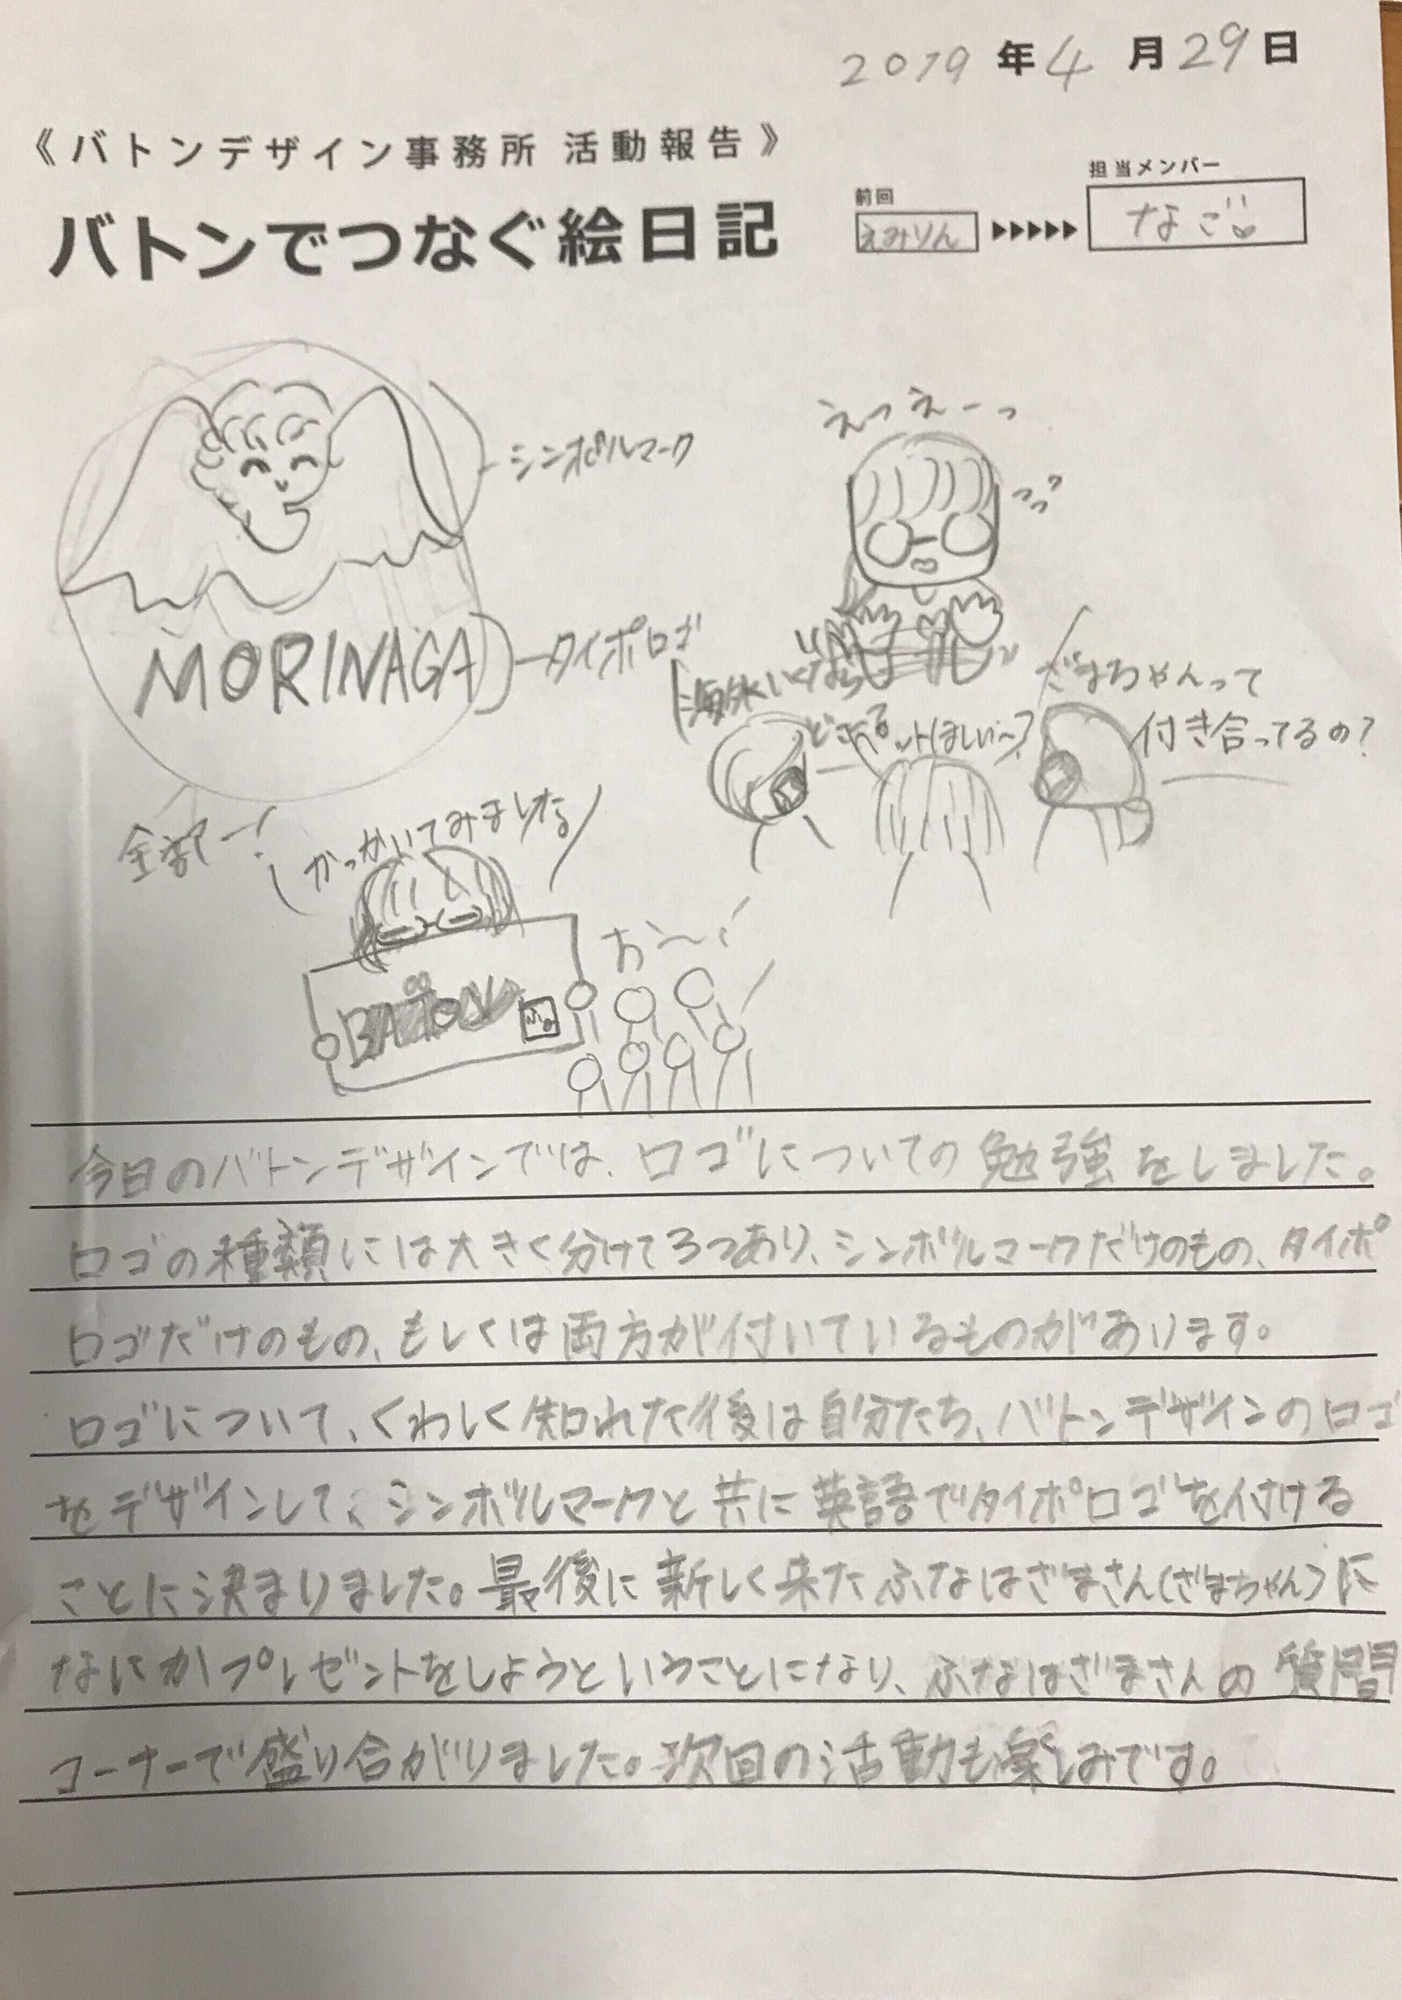 2019年4月29日
《バトンデザイン事務所 活動報告》
バトンでつなぐ絵日記
前回
えみりん
担当メンバー
なご
シンボルマーク
MORINAGA
タイポロゴ
えっえーっ
海外いくなら
どこへる
ほしい〜?
ざまちゃんって
付き合ってるの?
かっかいてみました
BATON
お〜!
今日のバトンデザインでは、ロゴについての勉強をしました。
ロゴの種類には大きく分けて3つあり、シンボルマークだけのもの、タイポ
ロゴだけのもの、もしくは両方が付いているものがあります。
ロゴについて、くわしく知れた後は自分たち、バトンデザインのロゴ
をデザインして、シンボルマークと共に英語でタイポロゴを付ける
ことに決まりました。最後に新しく来たふなはざまさん(ざまちゃん)に
なにかプレゼントをしようということになり、ふなはざまさんの質問
コーナーで盛り合がりました。次回の活動も楽しみです。